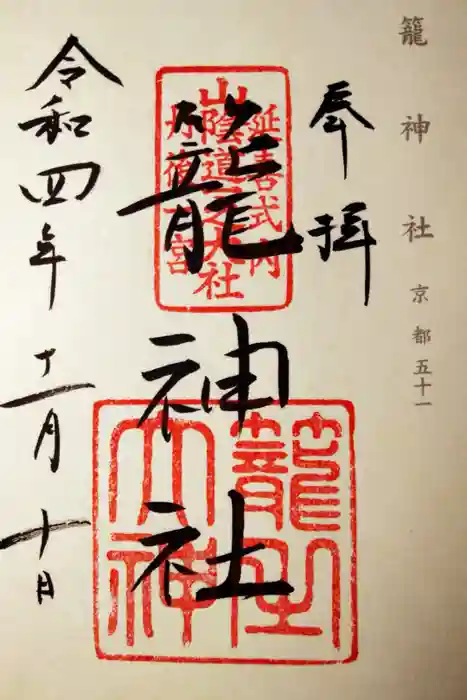 籠神社 京都五十一
奉拝
籠神社
延喜式内
山陰道之大社
丹後一宮
籠之大神
令和四年十一月十日